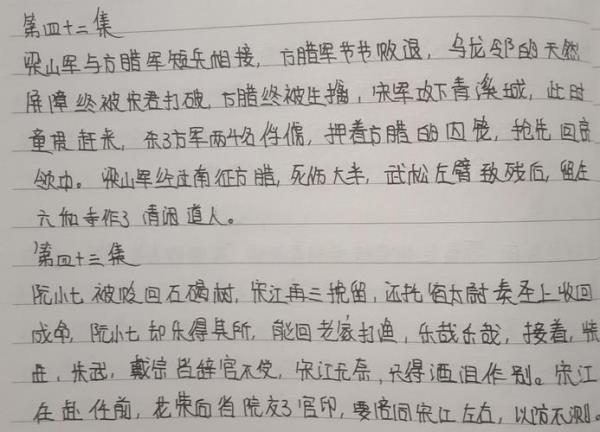 第四十二集
梁山军与方腊军短兵相接，方腊军节节败退，乌龙邻的天然
屏障终被宋君打破，方腊终被生擒，宋军攻下青溪城，此时
童贯赶来，杀了方军两千名俘虏，押着方腊的囚笼，抢先回京
领功。梁山军经过南征方腊，死伤大半，武松左臂致残后，留在
六和寺作了清闲道人。
第四十三集
阮小七被贬回石碣村，宋江再三挽留，还托宿太尉奏圣上收回
成命，阮小七却乐得其所，能回老家打渔，乐哉乐哉，接着，柴
进，朱武，戴宗皆辞官不受，宋江无奈，只得洒泪作别。宋江
在赴任前，花荣向省院交了官印，要陪同宋江左右，以防不测。